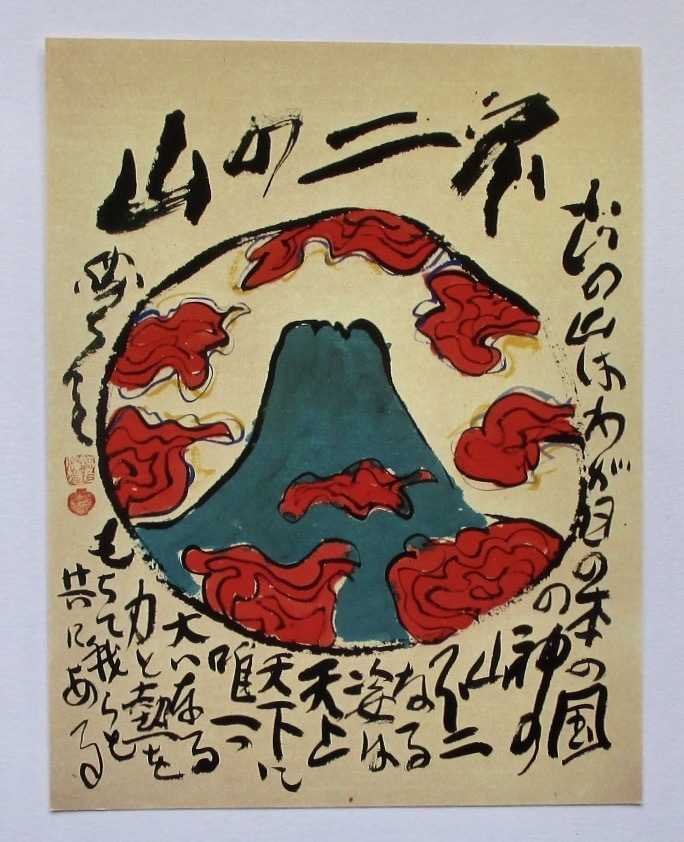 不二の山
の山はわが日の本の国
の神の
山
不二
なる
姿は
天上
天下に
唯一つ
大いなる
力と熱を
もちて我らと
共にある